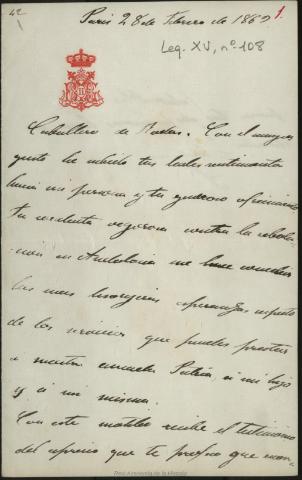 42
Paris 28 de Febrero de 1869
1.
Leg. XV, nº 108
Caballero de Rodas. Con el mayor
gusto he sabido tus leales sentimientos
hacia mi persona y tu generoso ofrecimiento.
Tu conducta vigorosa contra la rebelion
en Andalucia me hace concebir
las mas lisongeras esperanzas respecto
de los servicios que puedes prestar
a nuestra comun Patria, a mi hijo
y a mi misma.
Con este motivo recibe el testimonio
del aprecio que te profeso que
Real Academia de la Historia